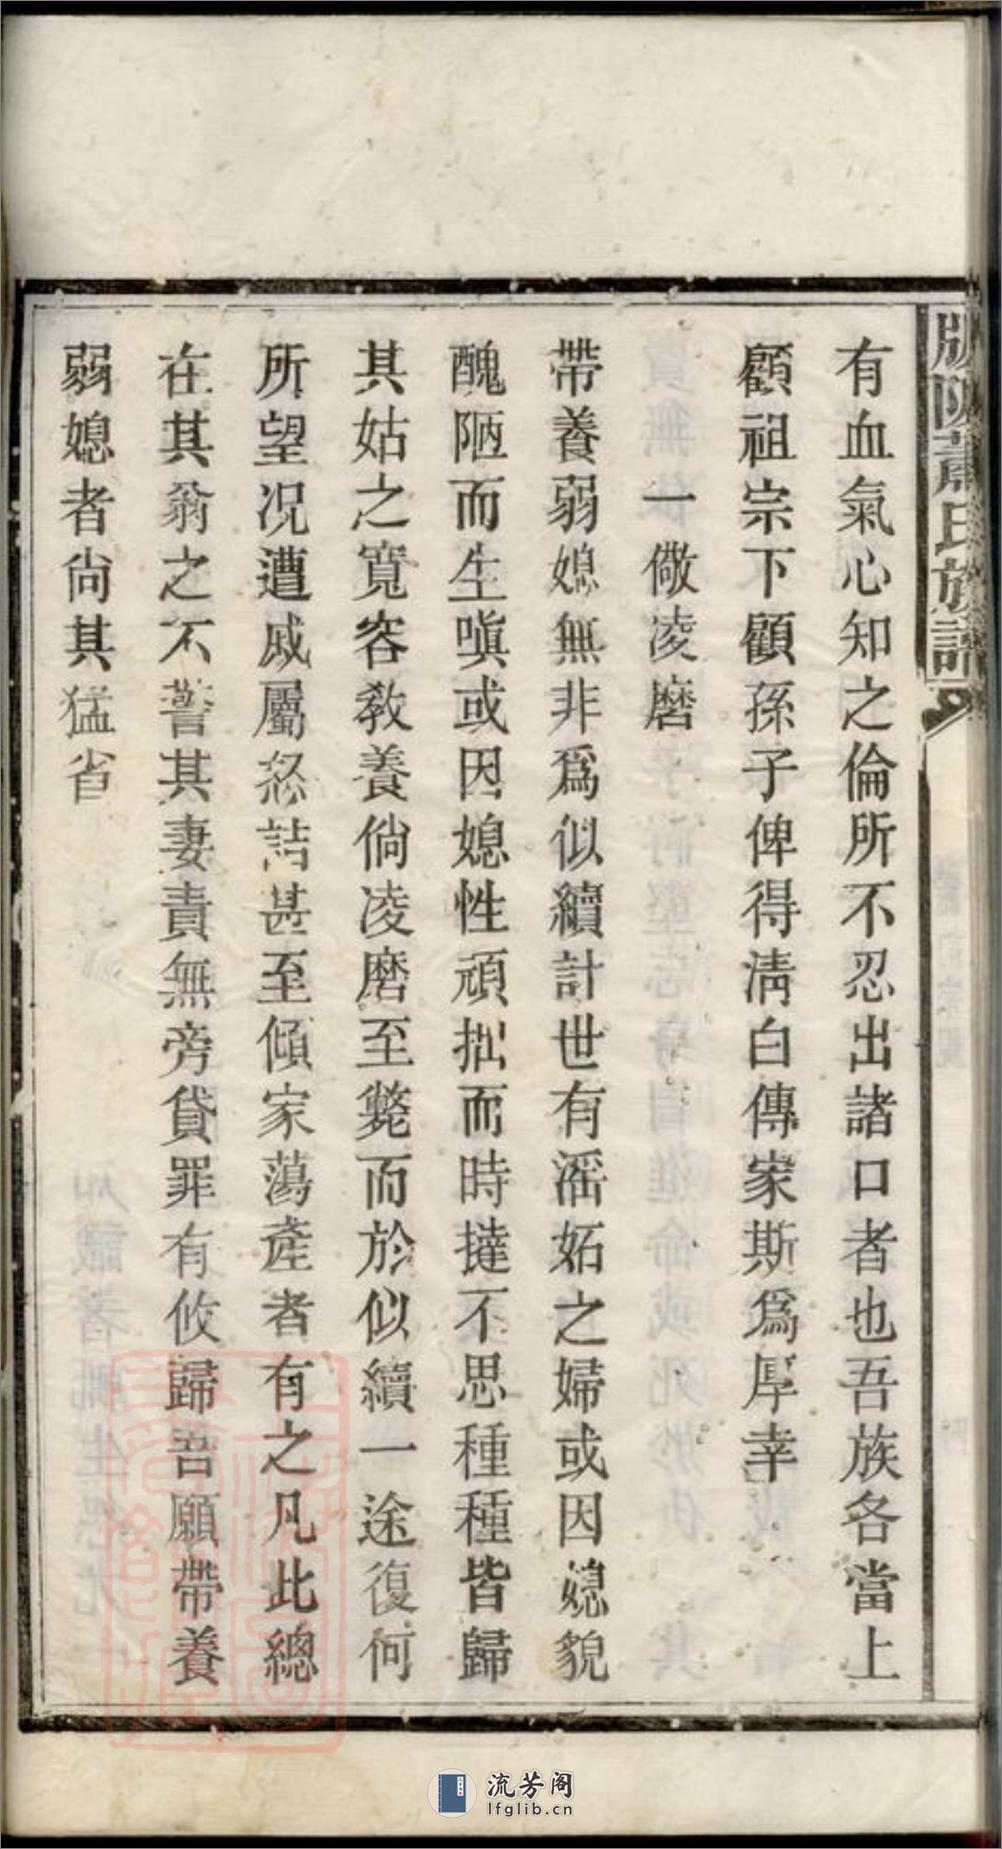 蕭氏族譜
有血氣心知之倫所不忍出諸口者也吾族各當上
顧祖宗下顧孫子俾得淸白傳家斯爲厚幸
一儆凌磨
帶養弱媳無非爲似續計世有滛妬之婦或因媳貌
醜陋而生嗔或因媳性頑拙而時撻不思種種皆歸
其姑之寛容敎養倘凌磨至斃而於似續一途復何
所望况遭戚屬忿詰甚至傾家蕩產者有之凡此總
在其翁之不警其妻責無旁貸罪有攸歸吾願帶養
弱媳者尙其猛省
流芳阁
lfglib.cn